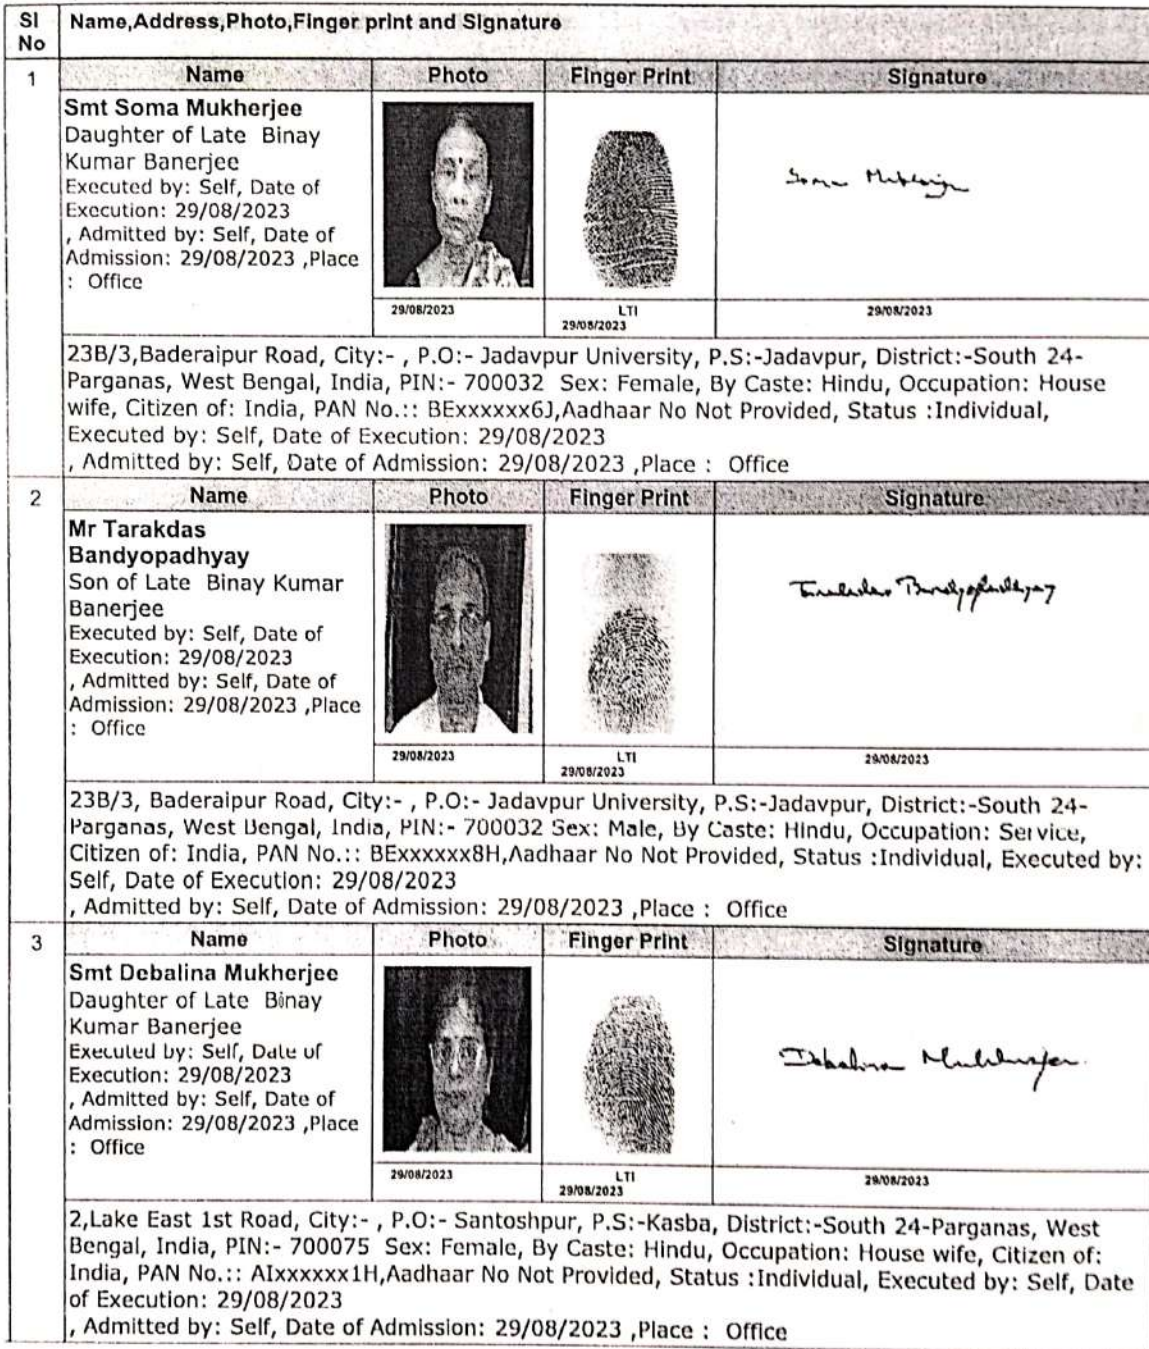 Sl No
Name,Address,Photo,Finger print and Signature
1
Name Photo Finger Print Signature
Smt Soma Mukherjee
Daughter of Late Binay
Kumar Banerjee
Executed by: Self, Date of
Execution: 29/08/2023
, Admitted by: Self, Date of
Admission: 29/08/2023 ,Place
: Office
Soma Mukherjee
29/08/2023
LTI
29/08/2023
29/08/2023
23B/3,Baderaipur Road, City:- , P.O:- Jadavpur University, P.S:-Jadavpur, District:-South 24-
Parganas, West Bengal, India, PIN:- 700032 Sex: Female, By Caste: Hindu, Occupation: House
wife, Citizen of: India, PAN No.:: BExxxxxx6J,Aadhaar No Not Provided, Status :Individual,
Executed by: Self, Date of Execution: 29/08/2023
, Admitted by: Self, Date of Admission: 29/08/2023 ,Place : Office
2
Name Photo Finger Print Signature
Mr Tarakdas
Bandyopadhyay
Son of Late Binay Kumar
Banerjee
Executed by: Self, Date of
Execution: 29/08/2023
, Admitted by: Self, Date of
Admission: 29/08/2023 ,Place
: Office
Tarakdas Bandyopadhyay
29/08/2023
LTI
29/08/2023
29/08/2023
23B/3, Baderaipur Road, City:- , P.O:- Jadavpur University, P.S:-Jadavpur, District:-South 24-
Parganas, West Bengal, India, PIN:- 700032 Sex: Male, By Caste: Hindu, Occupation: Service,
Citizen of: India, PAN No.:: BExxxxxx8H,Aadhaar No Not Provided, Status :Individual, Executed by:
Self, Date of Execution: 29/08/2023
, Admitted by: Self, Date of Admission: 29/08/2023 ,Place : Office
3
Name Photo Finger Print Signature
Smt Debalina Mukherjee
Daughter of Late Binay
Kumar Banerjee
Executed by: Self, Date of
Execution: 29/08/2023
, Admitted by: Self, Date of
Admission: 29/08/2023 ,Place
: Office
Debalina Mukherjee
29/08/2023
LTI
29/08/2023
29/08/2023
2,Lake East 1st Road, City:- , P.O:- Santoshpur, P.S:-Kasba, District:-South 24-Parganas, West
Bengal, India, PIN:- 700075 Sex: Female, By Caste: Hindu, Occupation: House wife, Citizen of:
India, PAN No.:: AIxxxxxx1H,Aadhaar No Not Provided, Status :Individual, Executed by: Self, Date
of Execution: 29/08/2023
, Admitted by: Self, Date of Admission: 29/08/2023 ,Place : Office